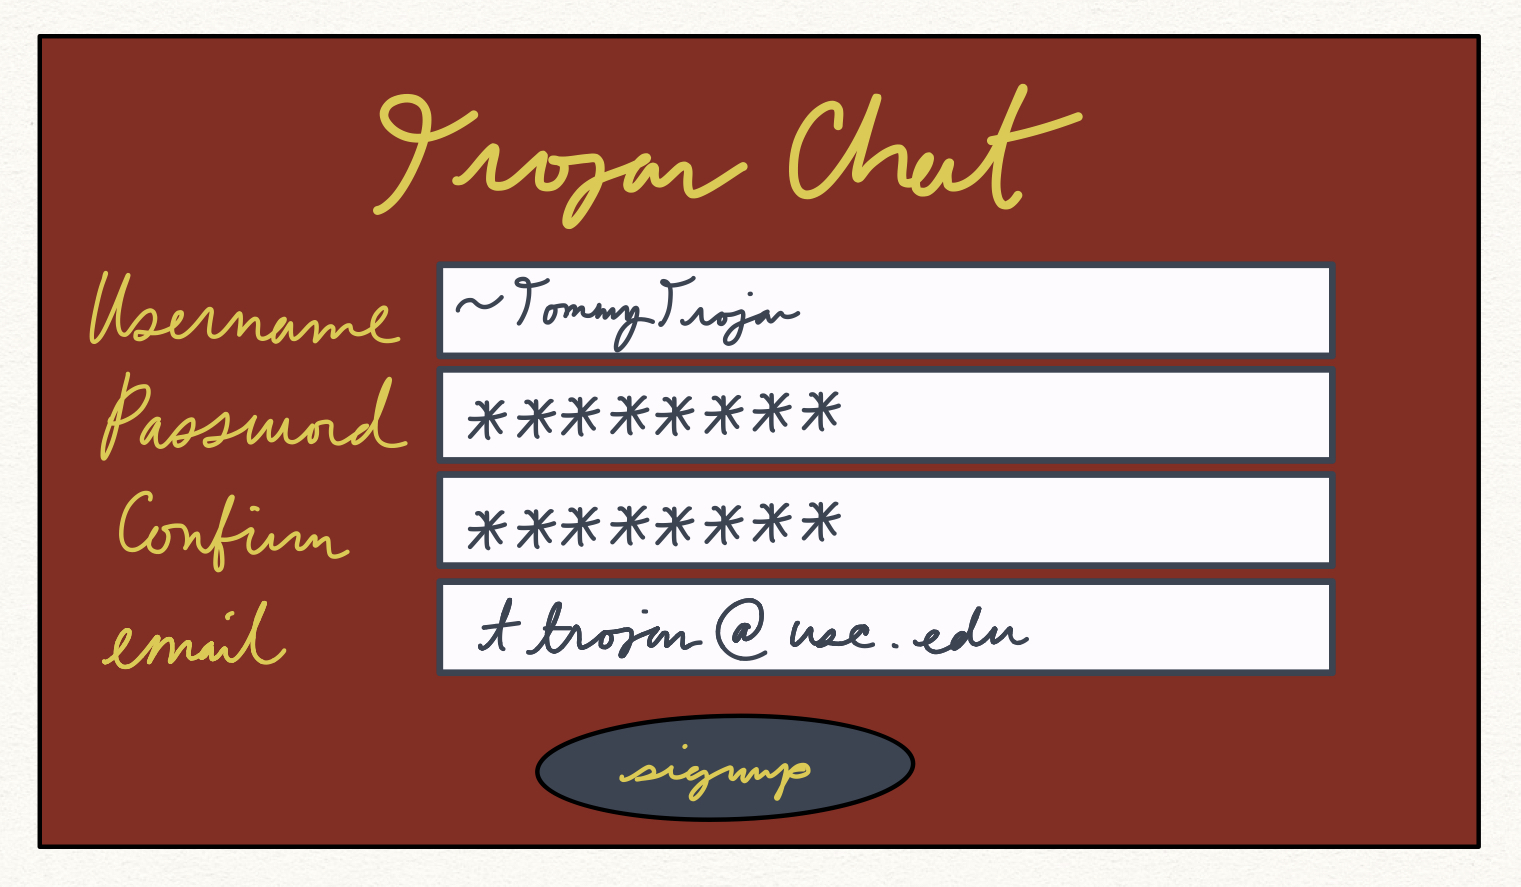 Trojan Chat
Username ~TommyTrojan
Password ********
Confirm ********
email ttrojan@usc.edu
signup